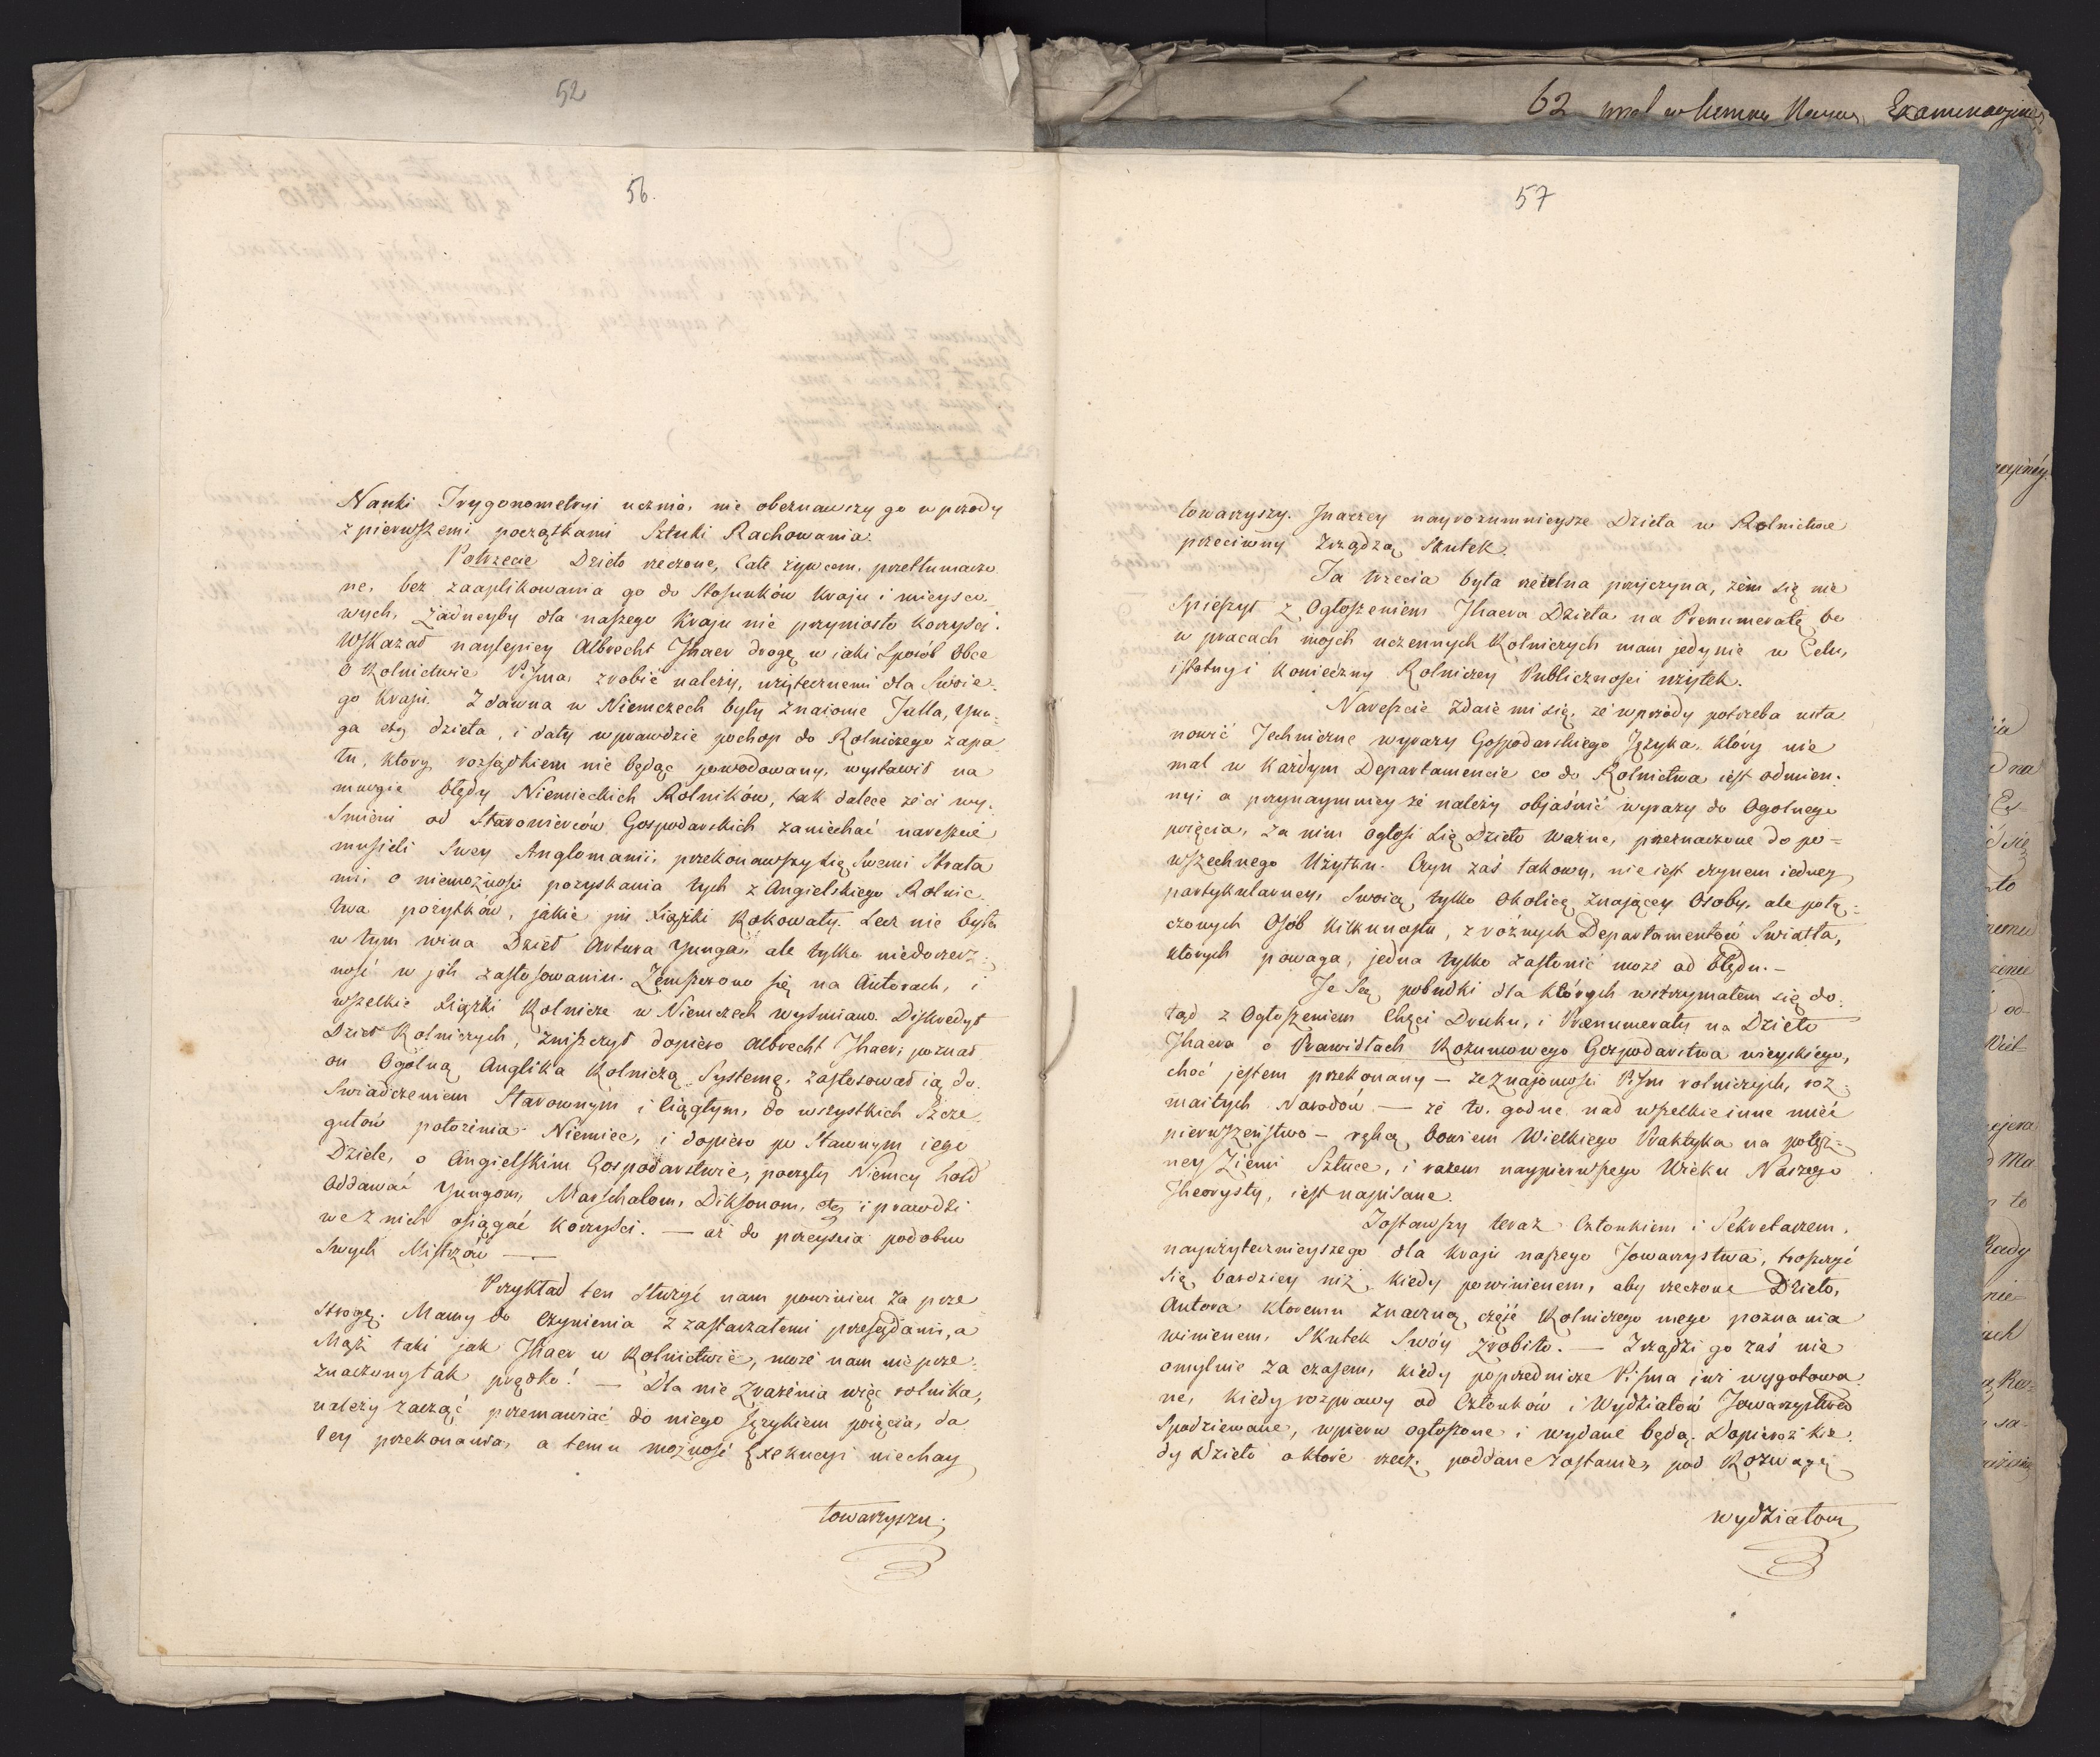 52
56.
Nauki Trygonometryi ucznia, nie obeznawszy go w przody
z pierwszemi początkami Sztuki Rachowania.
Potrzecie Dzieło rzeczone, Całe żywcem, przetłumaczo
ne, bez zaaplikowania go do Stosunków Kraju i mieysco
wych, żadneyby dla naszego Kraju nie przyniosło korzyści.
Wskazał naylepiey Albrecht Thaer drogę w iaki sposób Obce
o Rolnictwie Pisma, zrobić należy, użytecznemi dla Swoie-
go Kraju. Z dawna w Niemczech były znaiome Tulla, Yun-
ga etc dzieła, i dały wprawdzie pochop do Rolniczego zapa
łu, ktory rozsądkiem nie będąc powodowany, wystawił na
mnogie błędy Niemieckich Rolników, tak dalece że ci wy-
śmieni od Starowierców Gospodarskich zaniechać nareszcie
musieli Swey Anglomanii, przekonawszy się Swemi Strata
mi, o niemożności pozyskania tych z Angielskiego Rolnic
twa pożytków, jakie jm Xiążki Rokowały. Lecz nie była
w tym wina Dzieł Artura Yunga, ale tylko niedorzecz-
ność w jch zastosowaniu. Zemszczono się na Autorach, i
wszelkie Xiążki Rolnicze w Niemczech wyśmiano. Diskredyt
Dzieł Rolniczych, zniszczył dopiero Albrecht Thaer; poznał
on Ogólną Anglika Rolniczą Systemę, zastosował ią do-
Swiadczeniem Starownym i Ciągłym, do wszystkich Szcze
gułów położenia Niemiec, i dopiero po Sławnym iego
Dziele, o Angielskim Gospodarstwie, poczęły Niemcy hołd
Oddawać Yungom, Marschalom, Diksonom, etc i prawdzi
we z nich osiągać korzyści. — aż do przeyscia podobno
Swych Mistrzów —
Przykład ten Służyć nam powinien za prze
strogę. Mamy do czynienia z zastarzałemi przesądami, a
Mąż taki jak Thaer w Rolnictwie, może nam nie prze-
znaczony tak prędko! — Dla nie zrażenia więc rolnika,
należy zacząć przemawiać do niego Językiem poięcia, da
ley przekonania, a temu możność Exekucyi niechay
towarzyszy.
62
Examinacyine
57
towarzyszy. Jnaczey nayrozumnieysze Dzieła w Rolnictwie
przeciwny zrządzą Skutek.
Ta trzecia była rzetelna przyczyna, żem się nie
Spieszył z Ogłoszeniem Thaera Dzieła na Prenumeratę, bo
w pracach mojch uczennych Rolniczych mam jedynie w Celu,
istotny i konieczny Rolniczey Publiczności użytek.
Nareszcie zdaie mi się, że wprzódy potrzeba usta
nowić Techniczne wyrazy Gospodarskiego Języka, który nie
mal w każdym Departamencie co do Rolnictwa iest odmien-
nyi a przynaymniey że należy objaśnić wyrazy do Ogolnego
poięcia, za nim ogłosi się Dzieło ważne, przeznaczone do po=
wszechnego Użytku. Czyn zaś takowy, nie iest czynem iedney
partykularney, Swoią tylko Okolicę znającey Osoby, ale połą-
czonych Osób kilkunastu, z różnych Departamentów Swiatła,
których powaga, jedna tylko zasłonić może od błędu. —
Te są pobudki dla których wstrzymałem się do-
tąd z Ogłoszeniem Chęci Druku, i Prenumeraty na Dzieło
Thaera o Prawidłach Rozumowego Gospodarstwa wieyskiego,
choć jestem przekonany — ze znajomości Pism rolniczych, roz-
maitych Narodów — że to godne nad wszelkie inne mieć
pierwszeństwo — ręką bowiem Wielkiego Praktyka na potęż-
ney Ziemi Sztuce, i razem naypierwszego Wieku Naszego
Theorysty, iest napisane.
Zostawszy teraz Członkiem i Sekretarzem,
nayużytecznieyszego dla kraju naszego Towarzystwa, troszczyć
się bardziey niż kiedy powinienem, aby rzeczone Dzieło,
Autora ktoremu znaczną część Rolniczego mego poznania
winienem, Skutek Swóy zrobiło. — Zrządzi go zaś nie
omylnie za czasem, kiedy poprzednicze Pisma już wygotowa
ne, kiedy rozprawy od Członków i Wydziałów Towarzystwa
Spodziewane, wpierw ogłoszone i wydane będą. Dopieroż kie-
dy Dzieło o które rzecz, poddane zostanie, pod Rozwagę
wydziałom